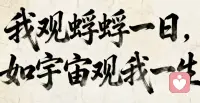 我观蜉蝣一日，
如宇宙观我一生